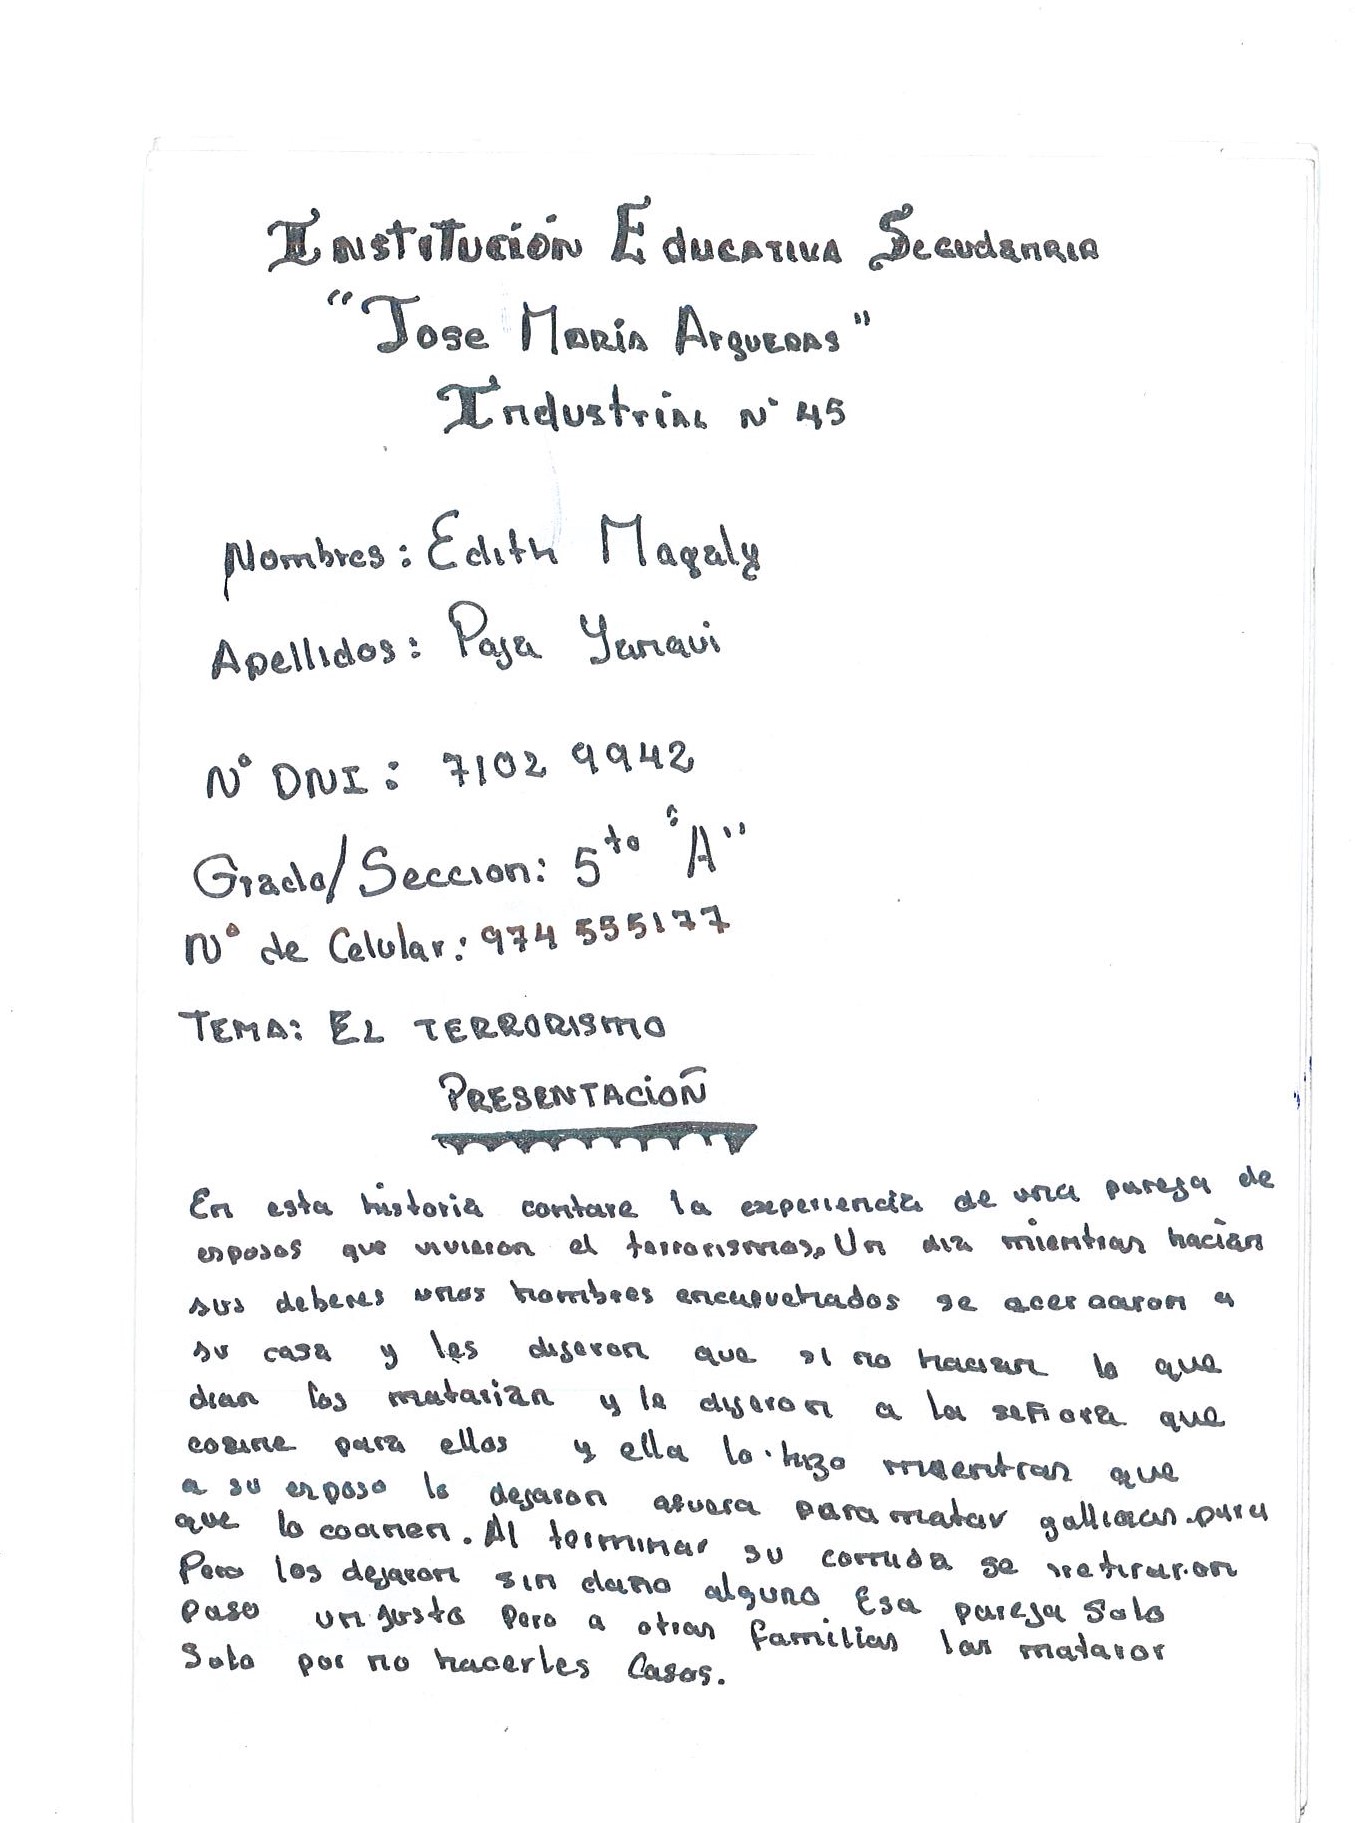 Institución Educativa Secudanria
"Jose María Arguedas"
Industrial N° 45
Nombres: Edith Magaly
Apellidos: Paja Yanqui
N° DNI: 7102 9942
Grado/Seccion: 5to "A"
N° de Celular: 974 555177
TEMA: EL TERRORISMO
PRESENTACIOÑ
En esta historia contare la experiencia de una pareja de
esposos que vivieron el terrorismos, Un dia mientras hacían
sus deberes unos hombres encapuchados se acercaron a
su casa y les dijeron que si no hacian lo que
dian los matarian y le dijeron a la señora que
cosine para ellos y ella lo hizo mientras que
a su esposo lo dejaron afuera para matar gallinas para
que lo cocinen. Al terminar su comida se retiraron
Pero los dejaron sin daño alguno Esa pareja Solo
paso un susto Pero a otras familias las mataron
Solo por no hacerles Casos.